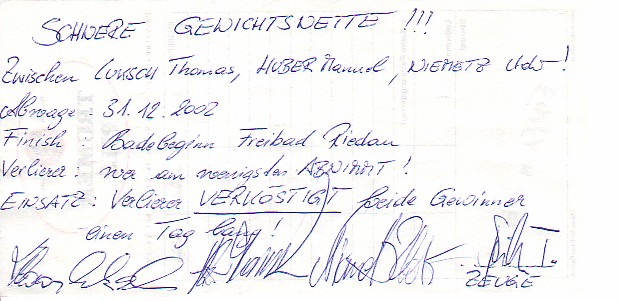 SCHWERE GEWICHTSWETTE !!!
Zwischen LUKSCH Thomas, HUBER Manuel, NIEMETZ Udo!
Abwaage: 31.12.2002
Finish: Badebeginn Freibad Riedau
Verlierer: wer am wenigsten ABNIMMT!
EINSATZ: Verlierer VERKÖSTIGT beide Gewinner
einen Tag lang!
ZEUGE